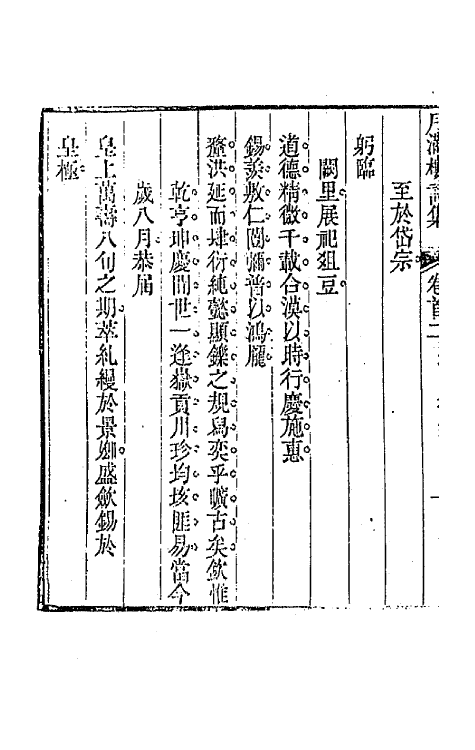 月滿樓詩集 卷首二
至於岱宗
躬臨
闕里展祀俎豆
道德精微千載合漠以時行慶施惠
錫羨敷仁闓彌普以鴻龎
洪延而肆衍純懿顯鑠之規舄奕乎曠古矣欽惟
乾亨坤慶閒世一逢嶽貢川珍均垓匪易當今
歲八月恭届
皇上萬壽八旬之期萃糺縵於景卿盛歛錫於
皇極